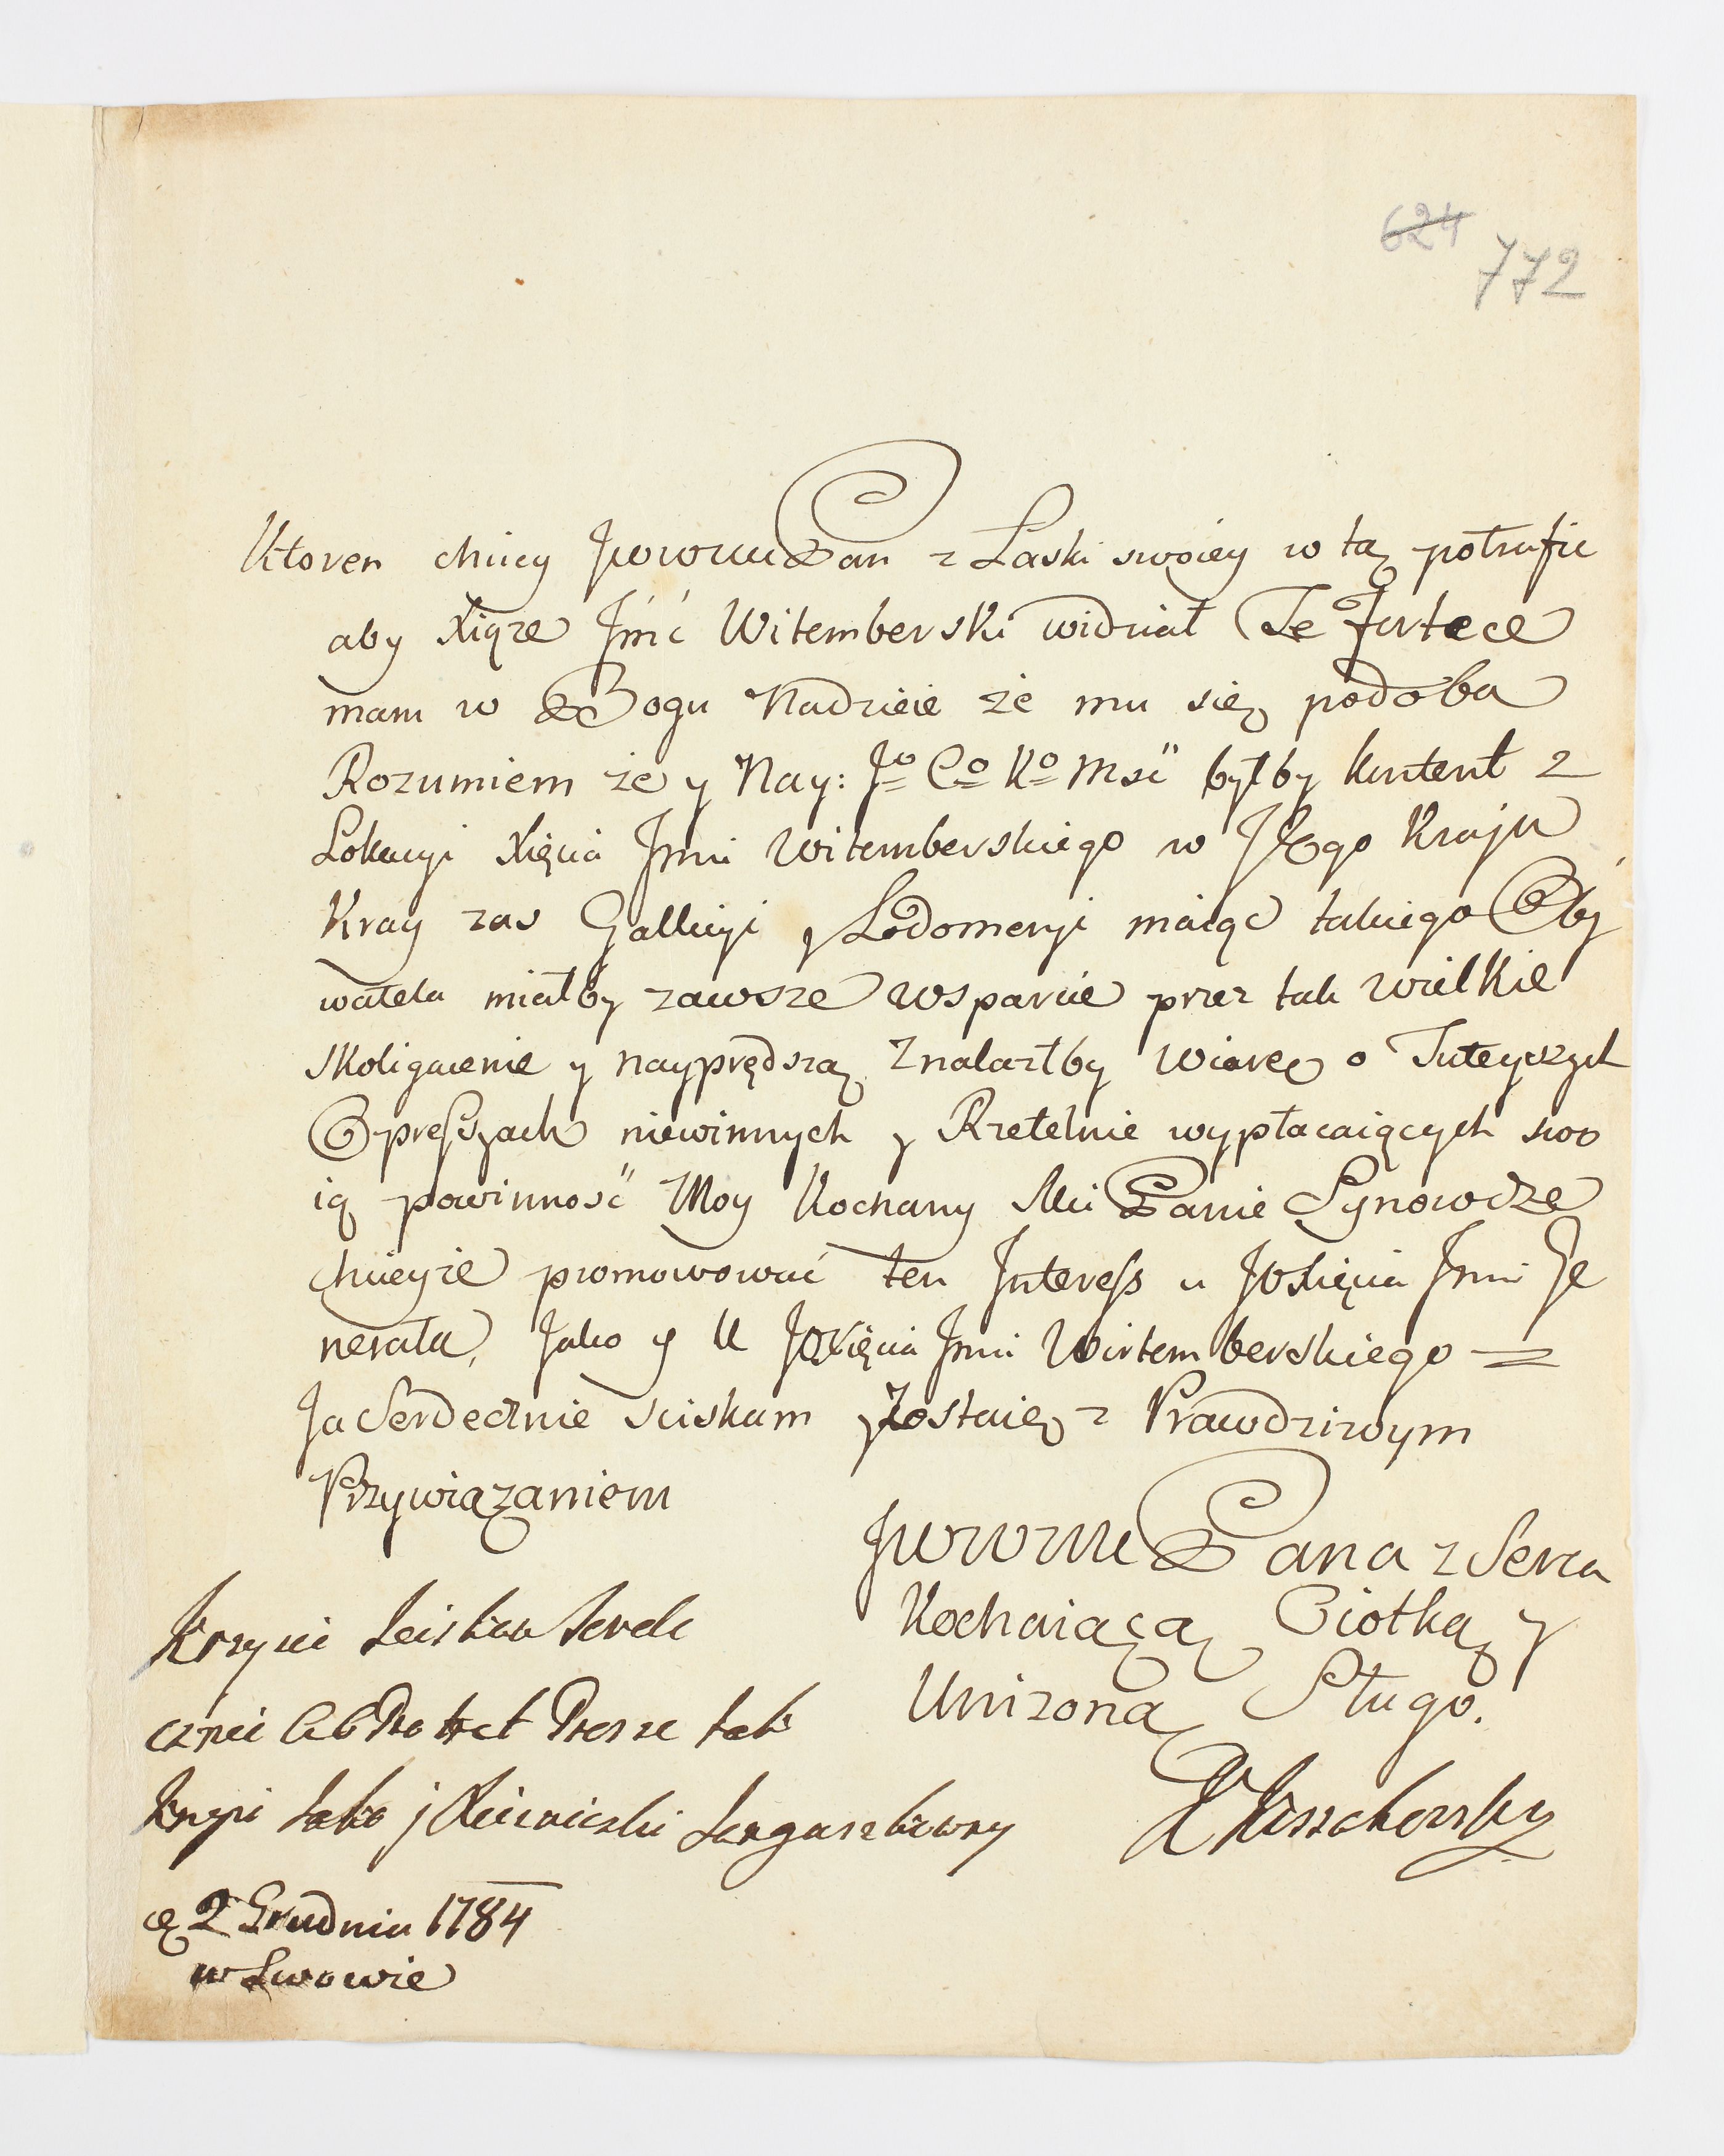 624
772
Ktoren chciey JWWM Pan z Laski swoiey w tą potrafic
aby Xiąze Jmć Witemberski widział Te Fortece
mam w Bogu Nadzieie że mu się podoba
Rozumiem że y Nay: Jo Co Ko Msć byłby kontent z
Lokacyi Xięcia Jmci Witemberskiego w Jego Kraju
Kray zas Gallicyi y Lodomeryi maiąc takiego Oby
watela miałby zawsze wsparcie przez tak wielkie
Skoligacenie y nayprędszą Znalazłby wiarę o Tuteyszych
Opressyach niewinnych y Rzetelnie wypłacaiących swo
ią powinność Moy Kochany Mci Panie Synowcze
chcieyze promowować ten Interess u JOXięcia Jmci Je
nerała, Jako y U JOXięcia Jmci Wirtemberskiego =
Ja Serdecznie sciskam y Zostaię z Prawdziwym
Przywiązaniem
JWWM Pana z Serca
Kochaiącą Ciotką y
Unizoną Sługą.
Kossakowska
Serde
cznie Prosze tak
jako j
2 Grudnia 1784
w Lwowie